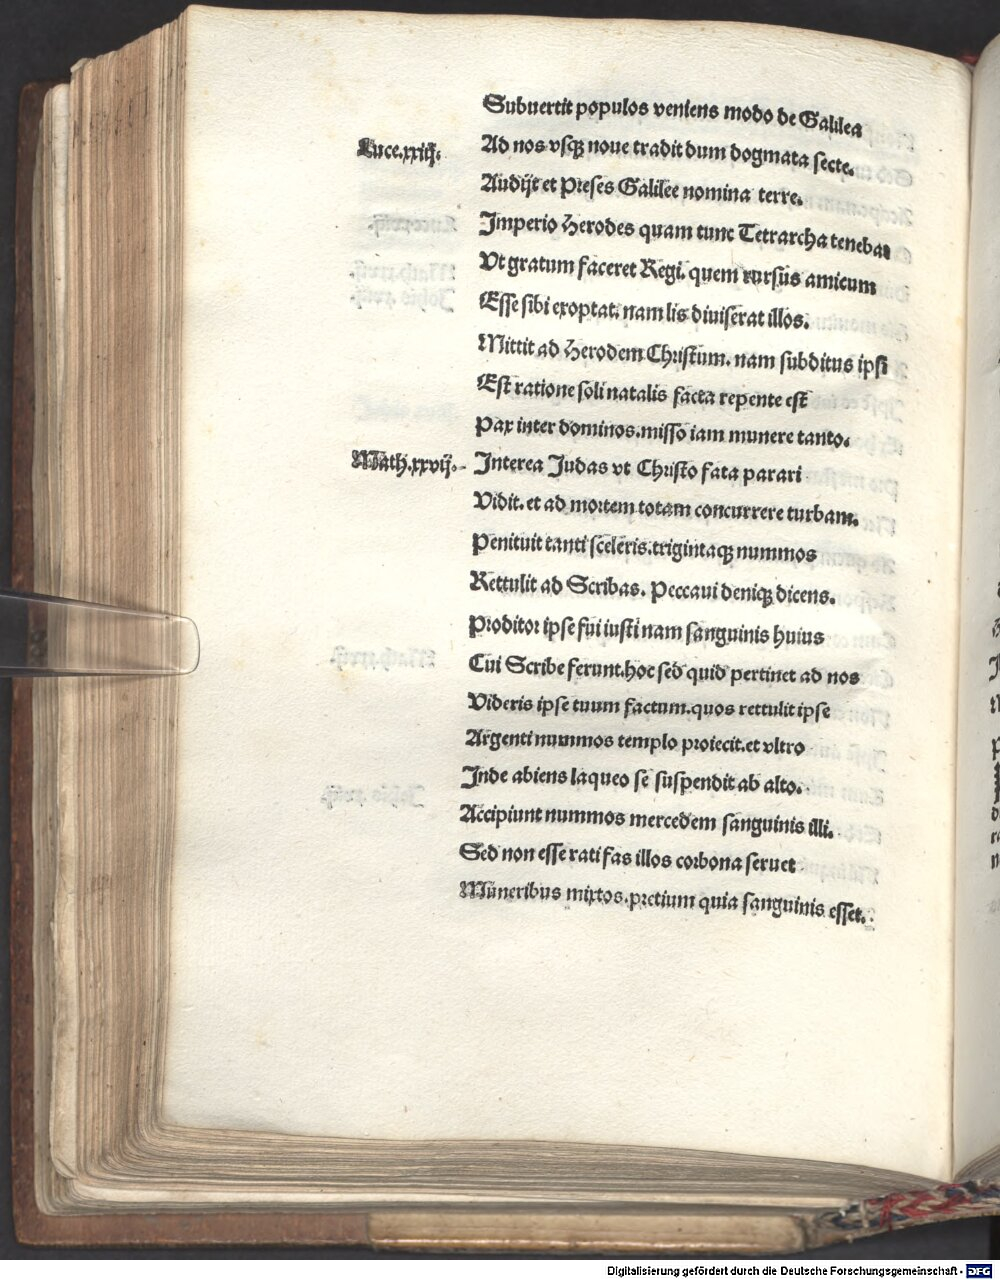 Subuertit populos veniens modo de Galilea
Luce.xxiij.
Ad nos vsqꝫ noue tradit dum dogmata secte.
Audijt et Preses Galilee nomina terre.
Imperio Herodes quam tunc Tetrarcha tenebat
Vt gratum faceret Regi. quem rursus amicum
Esse sibi exoptat. nam lis diuiserat illos.
Mittit ad Herodem Christum. nam subditus ipsi
Est ratione soli natalis facta repente est
Pax inter dominos. misso iam munere tanto.
Math.xxvij.
Interea Judas vt Christo fata parari
Vidit. et ad mortem totam concurrere turbam.
Penituit tanti sceleris. trigintaqꝫ nummos
Rettulit ad Scribas. Peccaui deniqꝫ dicens.
Proditor ipse fui iusti nam sanguinis huius
Cui Scribe ferunt. hoc sed quid pertinet ad nos
Videris ipse tuum factum. quos rettulit ipse
Argenti nummos templo proiecit. et vltro
Inde abiens laqueo se suspendit ab alto.
Accipiunt nummos mercedem sanguinis illi.
Sed non esse rati fas illos corbona seruet
Muneribus mixtos. pretium quia sanguinis esset.
Digitalisierung gefördert durch die Deutsche Forschungsgemeinschaft - DFG